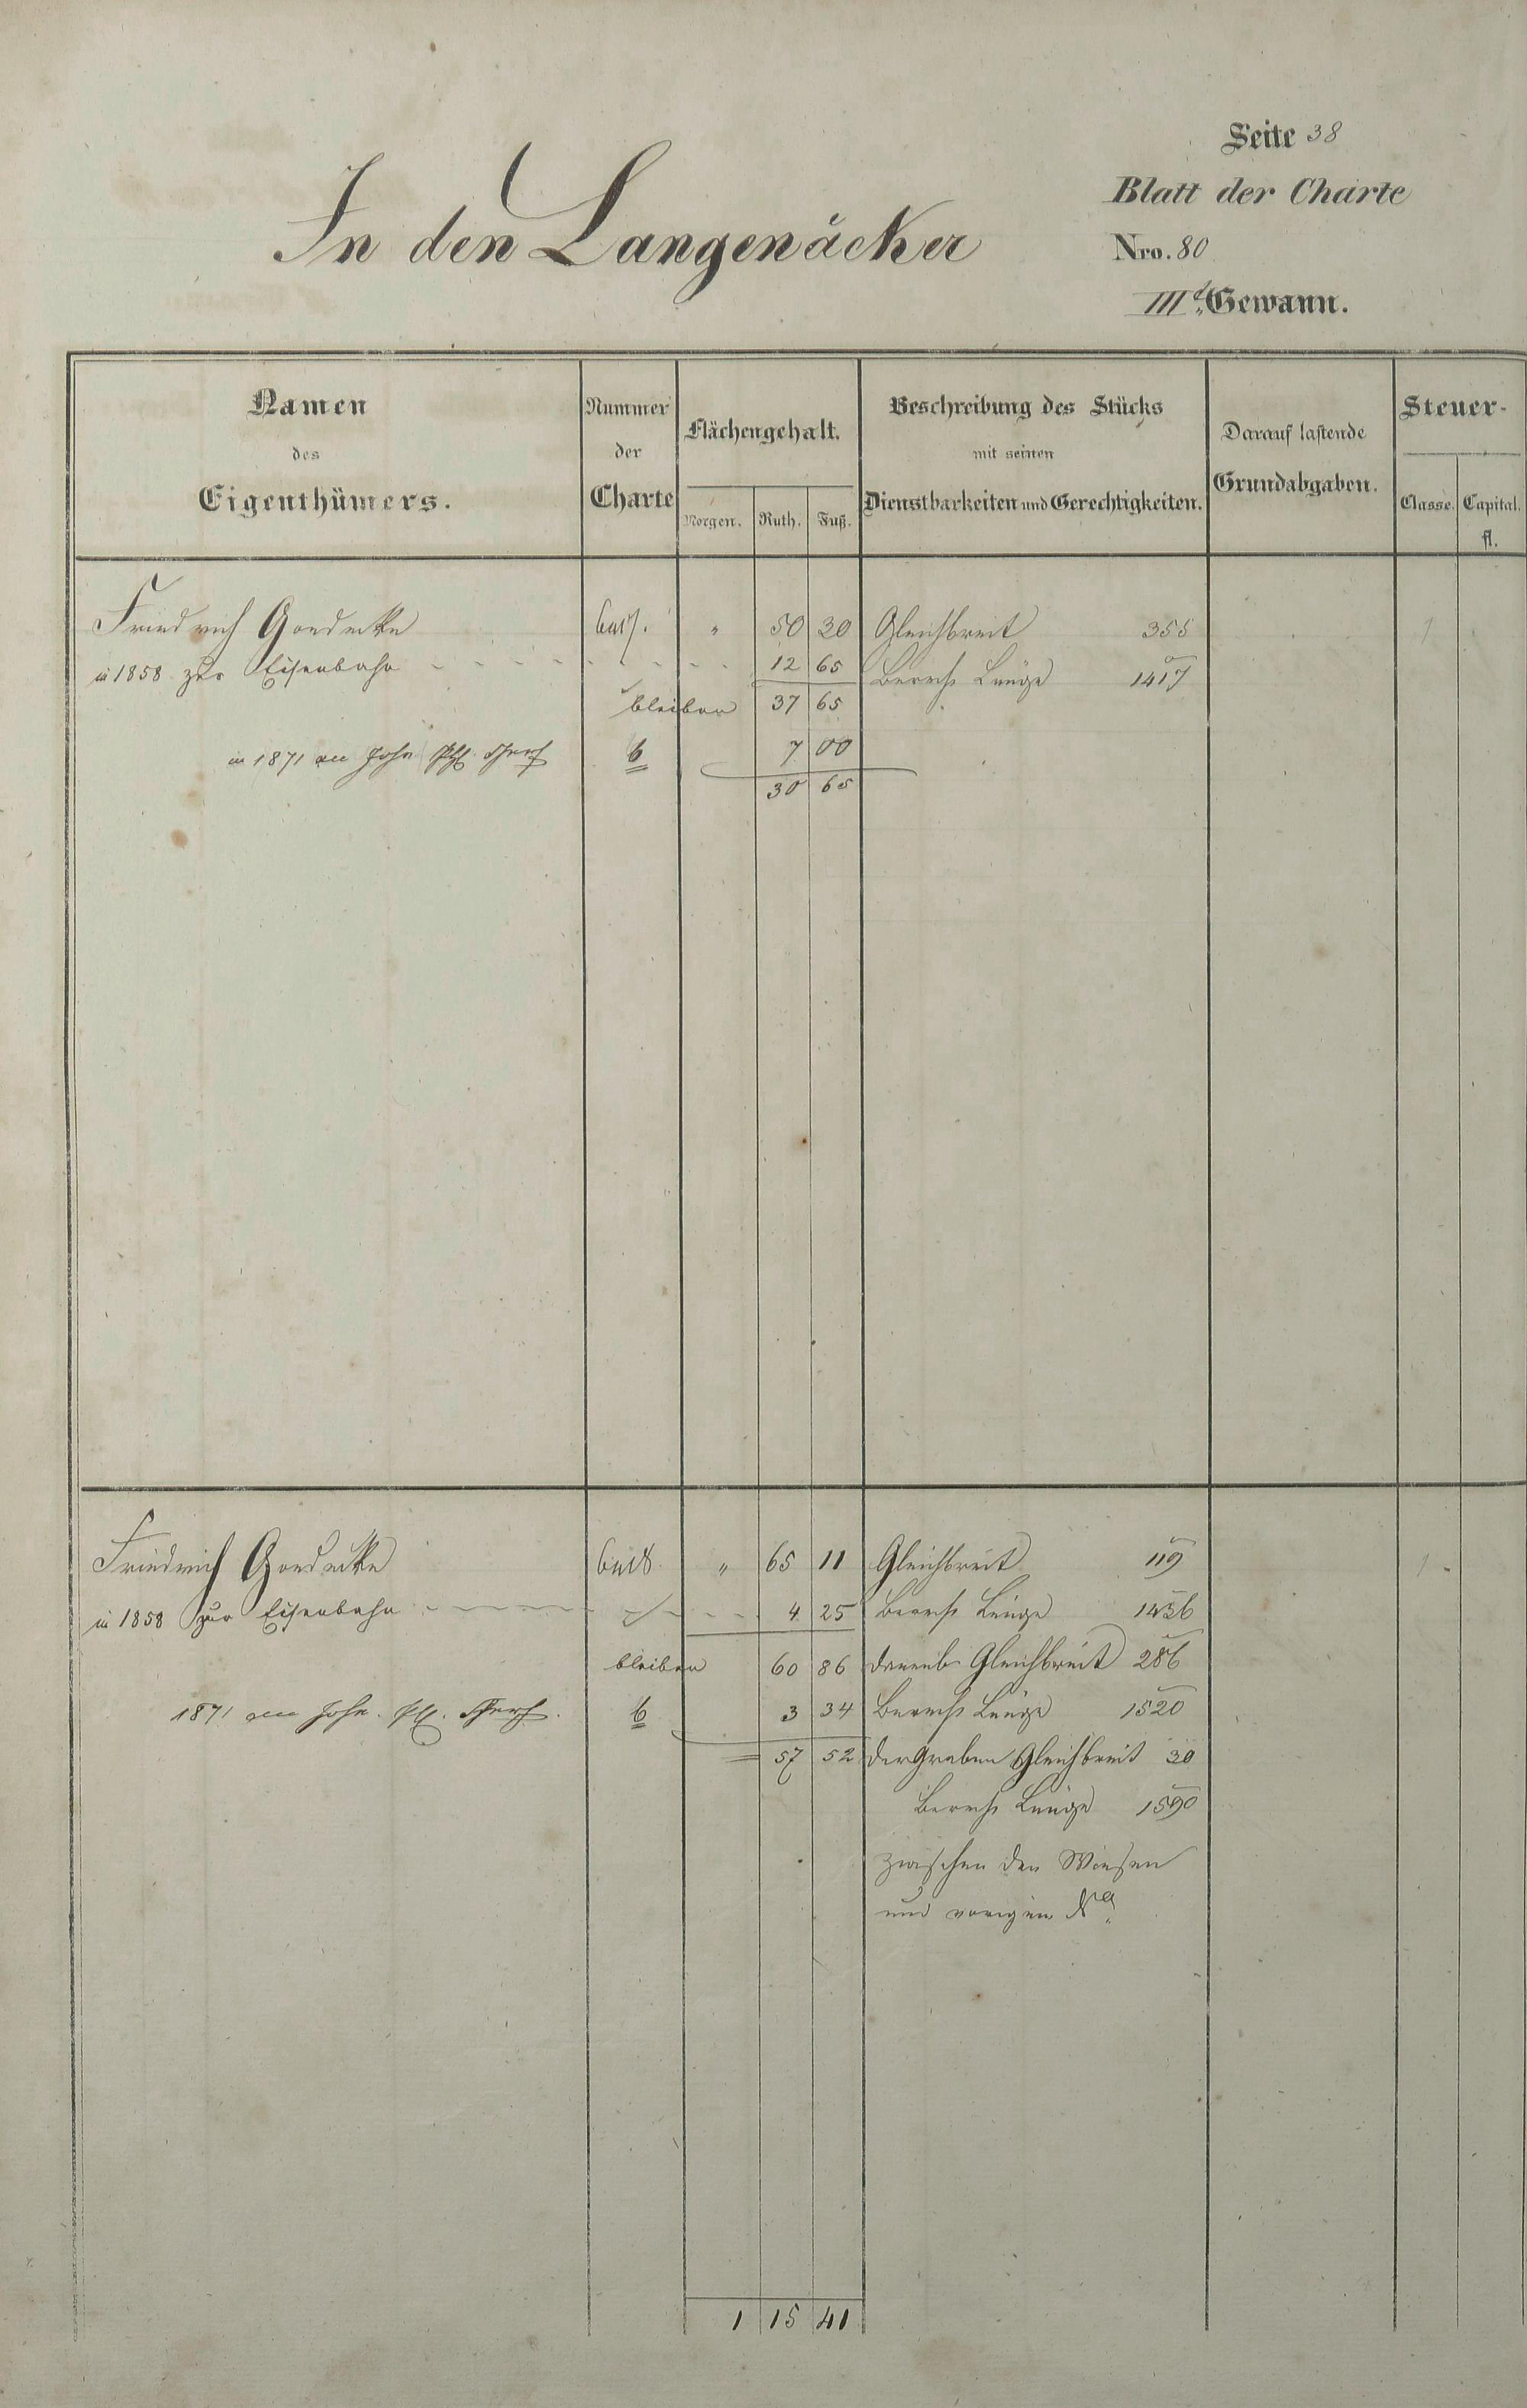 Seite 38
Blatt der Charte
In den Langenäcker
Nro. 80
III.te Gewann.
Namen des Eigenthümers.
Nummer der Charte
Flächengehalt.
Morgen. Ruth. Fuß.
Beschreibung des Stücks mit seinen Dienstbarkeiten und Gerechtigkeiten.
Darauf lastende Grundabgaben.
Steuer-
Classe. Capital. fl.
Friedrich Goedecke " 50 30 Gleichbreit 355 1
in 1858 zur Eisenbahn 12 65 Länge 1417
bleiben 37 65
in 1871 an Joh. 6 7 00
30 65
Friedrich Goedecke " 65 11 Gleichbreit 119 1
in 1858 zur Eisenbahn 4 25 Länge 1456
bleiben 60 86 Gleichbreit 286
1871 an Joh. 6 3 34 Länge 1520
= 57 52 der Graben Gleichbreit 30
Länge 1590
zwischen den Wiesen
und vorigen
1 15 41